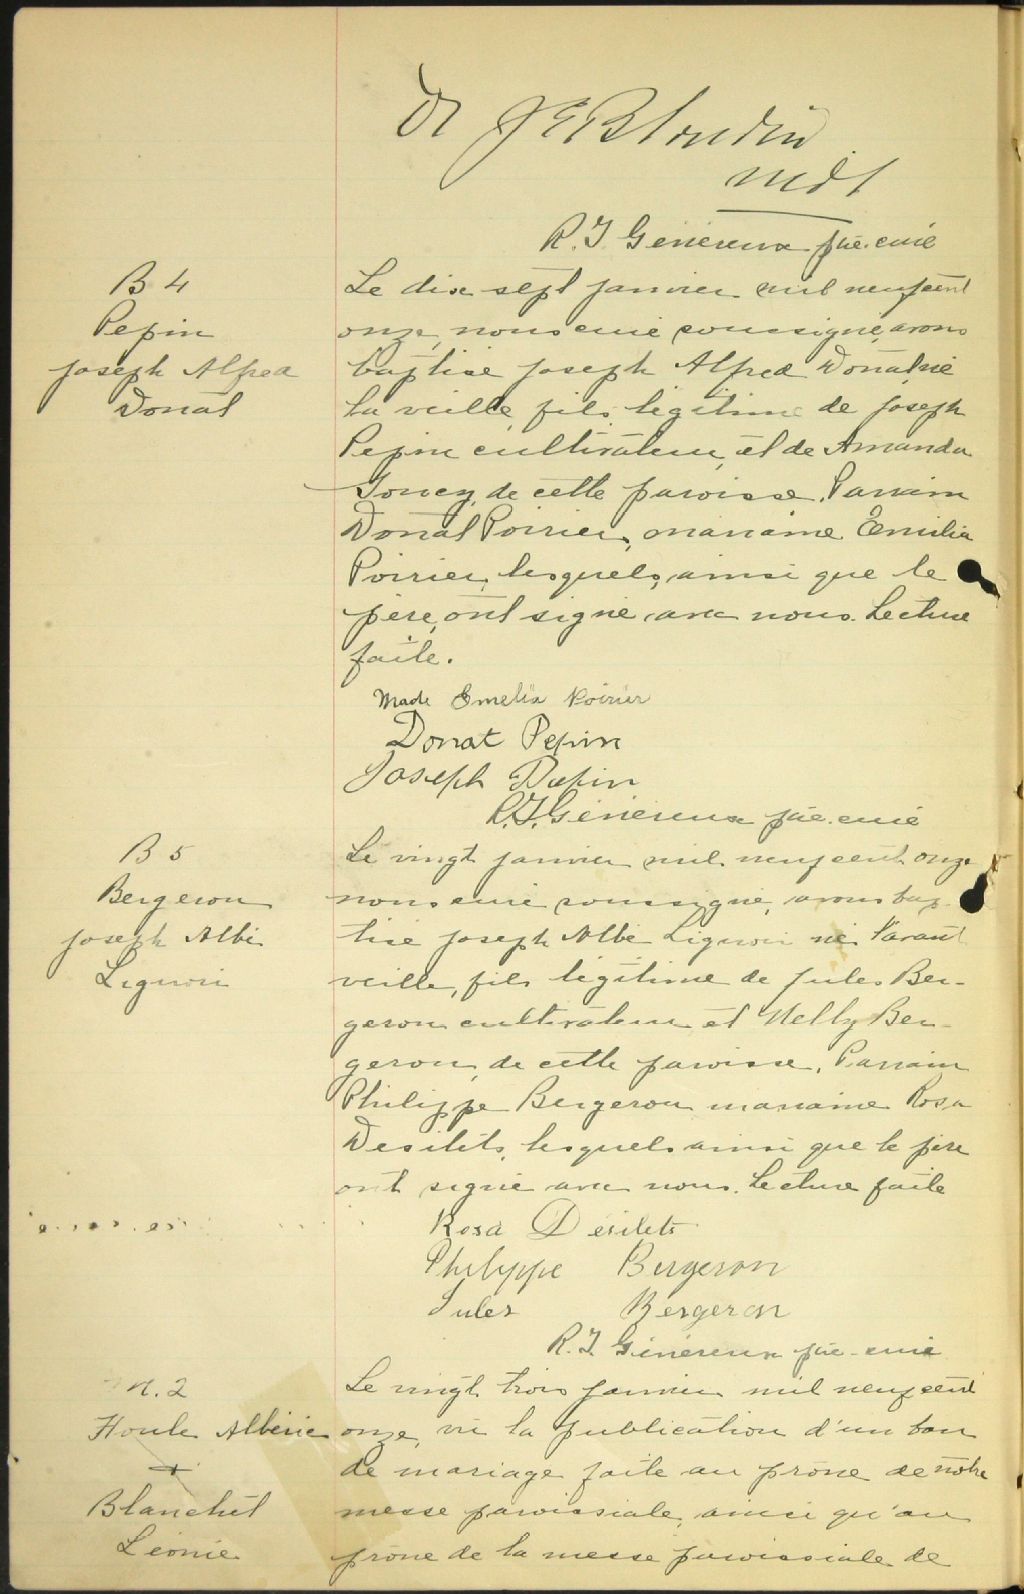 Dr J E Blondin
R. J. Généreux ptre. curé
B 4
Pepin
Joseph Alfred
Donat
Le dix sept janvier mil neuf cent
onze, nous curé soussigné, avons
baptisé Joseph Alfred Donat, né
la veille, fils légitime de Joseph
Pepin cultivateur, et de Amanda
de cette paroisse. Parrain
Donat Poirier, marraine Emilia
Poirier, lesquels, ainsi que le
père, ont signé avec nous. Lecture
faite.
Made Emelia Poirier
Donat Pepin
Joseph Pepin
R. J. Généreux ptre. curé
B 5
Bergeron
Joseph Albé
Liguori
Le vingt janvier mil neuf cent onze
nous curé soussigné, avons bap-
tisé Joseph Albé Liguori né l'avant
veille, fils légitime de Jules Ber-
geron cultivateur et Nelly Ber-
geron, de cette paroisse. Parrain
Philippe Bergeron marraine Rosa
Desilets, lesquels ainsi que le père
ont signé avec nous. Lecture faite
Rosa Désilets
Philippe Bergeron
Jules Bergeron
R. J. Généreux ptre. curé
M. 2
Houle Albéric
+
Blanchet
Léonie
Le vingt trois janvier mil neuf cent
onze, vu la publication d'un ban
de mariage faite au prône de notre
messe paroissiale, ainsi qu'au
prône de la messe paroissiale de